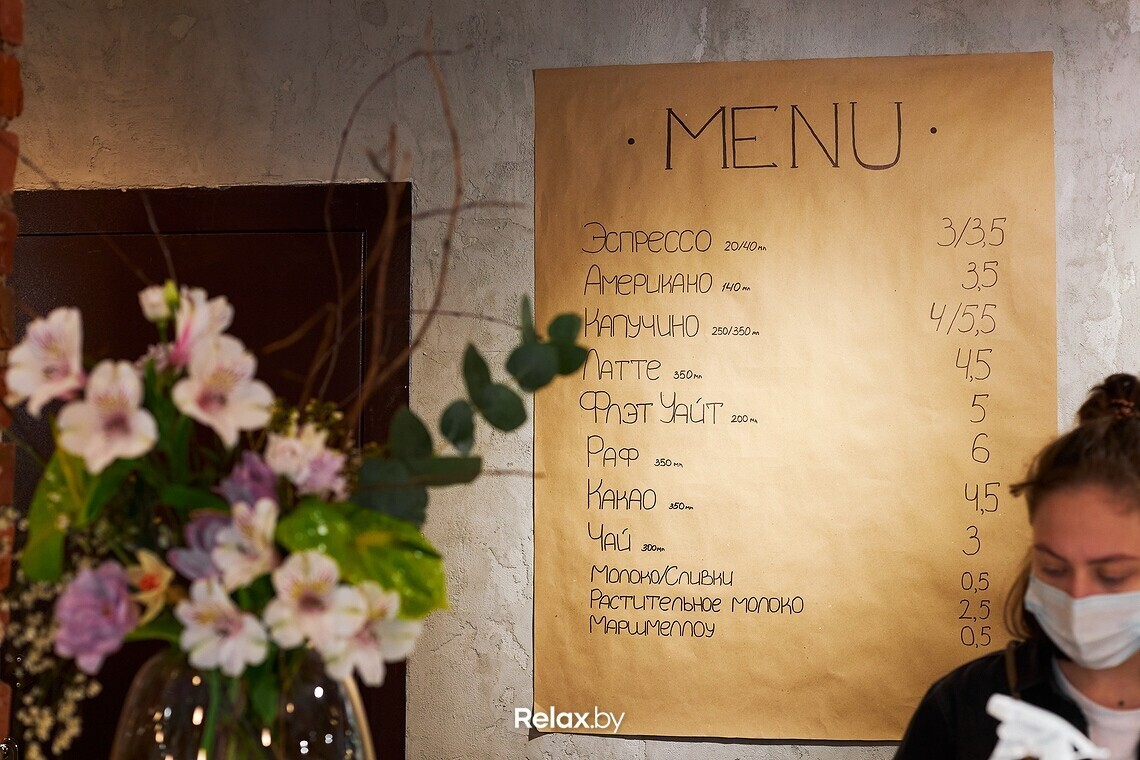 • MENU •
Эспрессо 20/40мл 3/3,5
Американо 140мл 3,5
Капучино 250/350мл 4/5,5
Латте 350мл 4,5
Флэт Уайт 200мл 5
Раф 350мл 6
Какао 350мл 4,5
Чай 300мл 3
Молоко/Сливки 0,5
Растительное молоко 2,5
Маршмеллоу 0,5
Relax.by